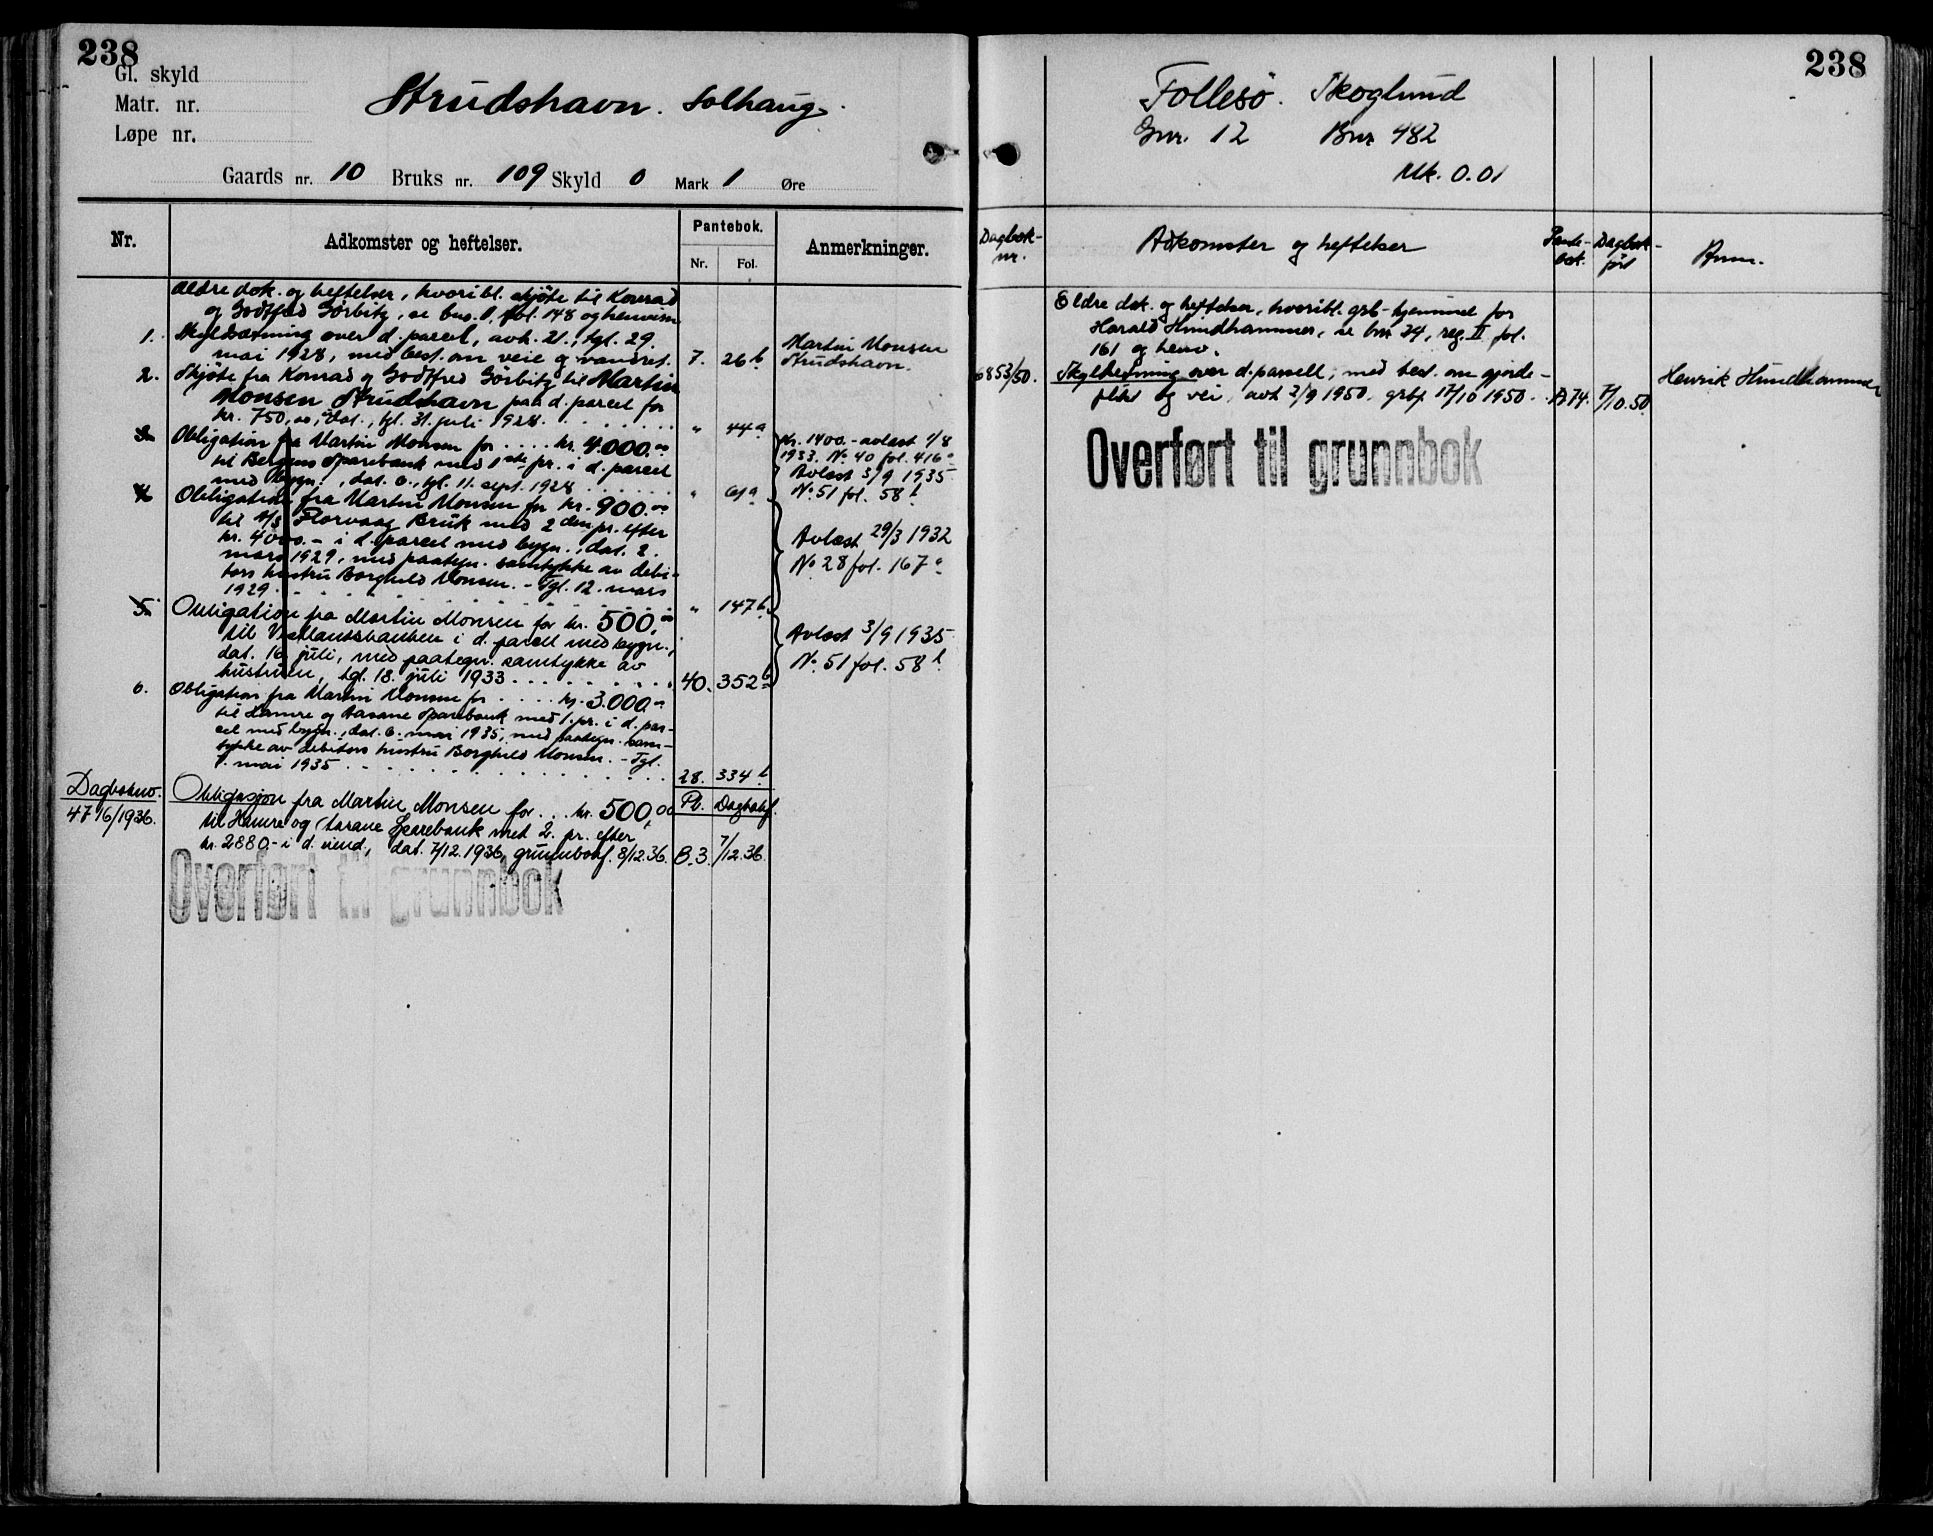 238
Gl. skyld
Matr. nr.
Løpe nr.
Strudshavn. Solhaug.
Gaards nr. 10 Bruks nr. 109 Skyld 0 Mark 1 Øre
Nr.
Adkomster og heftelser.
Pantebok.
Nr. Fol.
Anmerkninger.
Ældre dok. og heftelser, hvoribl. skjøte til Konrad
og Godtfred Görbitz, se bno. 1, fol. 148 og henvisn
1. Skyldsætning over d. parcel, avh. 21., tgl. 29.
mai 1928, med best. om veie og vandret. 7. 26 b
Martin Monsen
Strudshavn.
2. Skjøte fra Konrad og Godtfred Görbitz til Martin
Monsen Strudshavn paa d. parcel for
kr. 750,00, dat., tgl. 31. juli 1928. " 44 a
3. Obligation fra Martin Monsen for .... kr. 4.000.00
til Bergens Sparebank med 1ste pr. i d. parcel
med bygn., dat. 6., tgl. 11. sept. 1928 " 61 a
kr. 1400.- avlæst 1/8
1933. No. 40 fol. 416 a
Avlæst 3/9 1935
No 51 fol. 58 b
4. Obligation fra Martin Monsen for kr. 900.00
til A/S Florvaag Bruk med 2den pr. efter
kr. 4000.- i d. parcel med bygn., dat. 2.
mars 1929, med paategn. samtykke av debi-
tors hustru Borghild Monsen. - Tgl. 12. mars
1929 " 147 b
Avlæst 29/3 1932
No 28 fol. 167 a
5. Obligation fra Martin Monsen for kr. 500,00
til Vestlandsbanken i d. parcell med bygn.,
dat. 16. juli, med paategn. samtykke av
hustruen, tgl. 18. juli 1933 40. 352 b
Avlæst 3/9 1935
No. 51 fol. 58 b
6. Obligation fra Martin Monsen for .... kr. 3.000.00
til Hamre og Aasane Sparebank med 1. pr. i d. par-
cel med bygn., dat. 6. mai 1935, med paategn. sam-
tykke av debitors hustru Borghild Monsen. - Tgl.
mai 1935 28. 334 b
Dagboknr.
4716/1936.
Pb. Dagbokf.
Obligasjon fra Martin Monsen for .. kr. 500,00
til Hamre og Aasane Sparebank med 2. pr. efter
kr. 2880.- i d. eiend., dat. 7/12.1936, grunnbokf. 8/12.36. B.3. 7/12.36.
Overført til grunnbok
238
Follesö. Skoglund
Gnr. 12 Bnr 482
Mk. 0.01
Dagbok-
nr.
Adkomster og heftelser
Pante-
bok.
Dagbok-
ført
Anm.
Eldre dok. og heftelser, hvoribl. grb-hjemmel for
Harald Hundhammer, se bnr 24, reg. II fol.
161 og henv.
6853/50. Skyldedning over d. parsell, med best. om gjerde-
plikt og vei, avh 2/9 1950. grbf. 12/10 1950. B 74. 7/10.50
Henrik Hundhammer
Overført til grunnbok